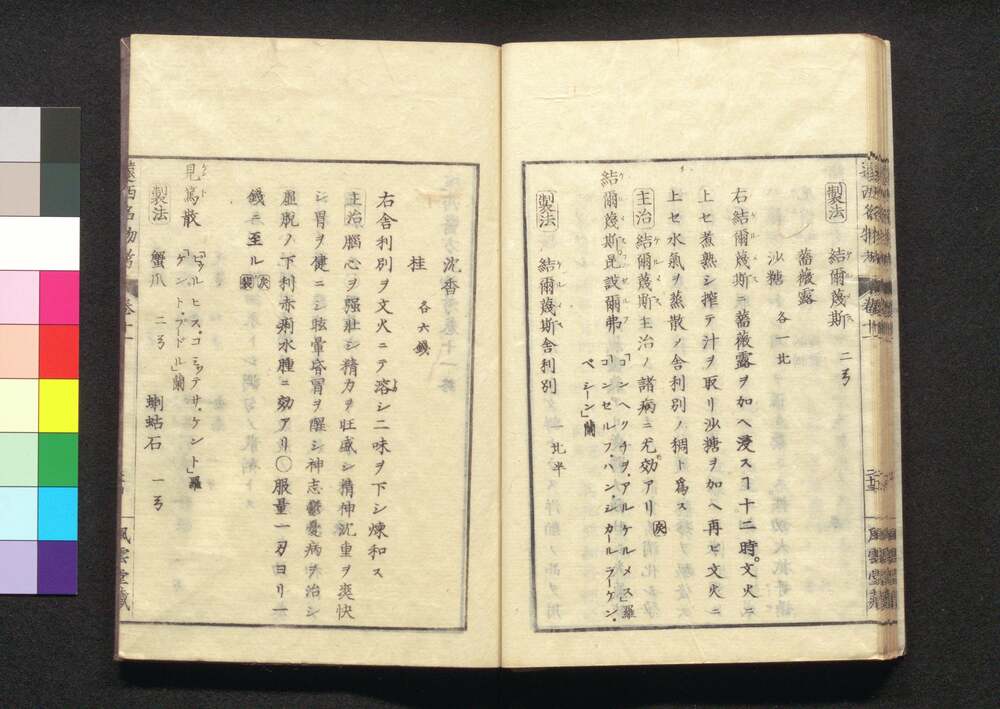 製法 結爾蔑斯 二弓
薔薇露
沙糖 各一比
右結爾蔑斯ニ薔薇露ヲ加ヘ浸スヿ十二時。文火ニ
上セ煮熟シ搾テ汁ヲ取リ沙糖ヲ加ヘ再ヒ文火ニ
上セ水氣ヲ蒸散ノ舍利別ノ稠ト爲ス
主治 結爾蔑斯主治ノ諸病ニ尤効アリ
結爾蔑斯昆設爾弗 「コンヘクチヲ、アルケルメス」羅
「コンセルフ、ハン、シカールラーケン、
ベシーン」蘭
製法 結爾蔑斯舍利別 一比半
沈香
桂 各六錢
右舍利別ヲ文火ニテ溶シ二味ヲ下シ煉和ス
主治 腦心ヲ强壯シ精力ヲ旺盛シ精神沈重ヲ爽快
シ胃ヲ健ニシ眩暈昏冒ヲ醒シ神志鬱憂病ヲ治シ
虛脱ノ下利赤痢水腫ニ効アリ○服量一刃ヨリ一
錢ニ至ル
見篤散
「ケント、プードル」蘭
製法 蟹爪 二弓 蝲蛄石 一弓
遠西名物考 卷十一
風雲堂藏